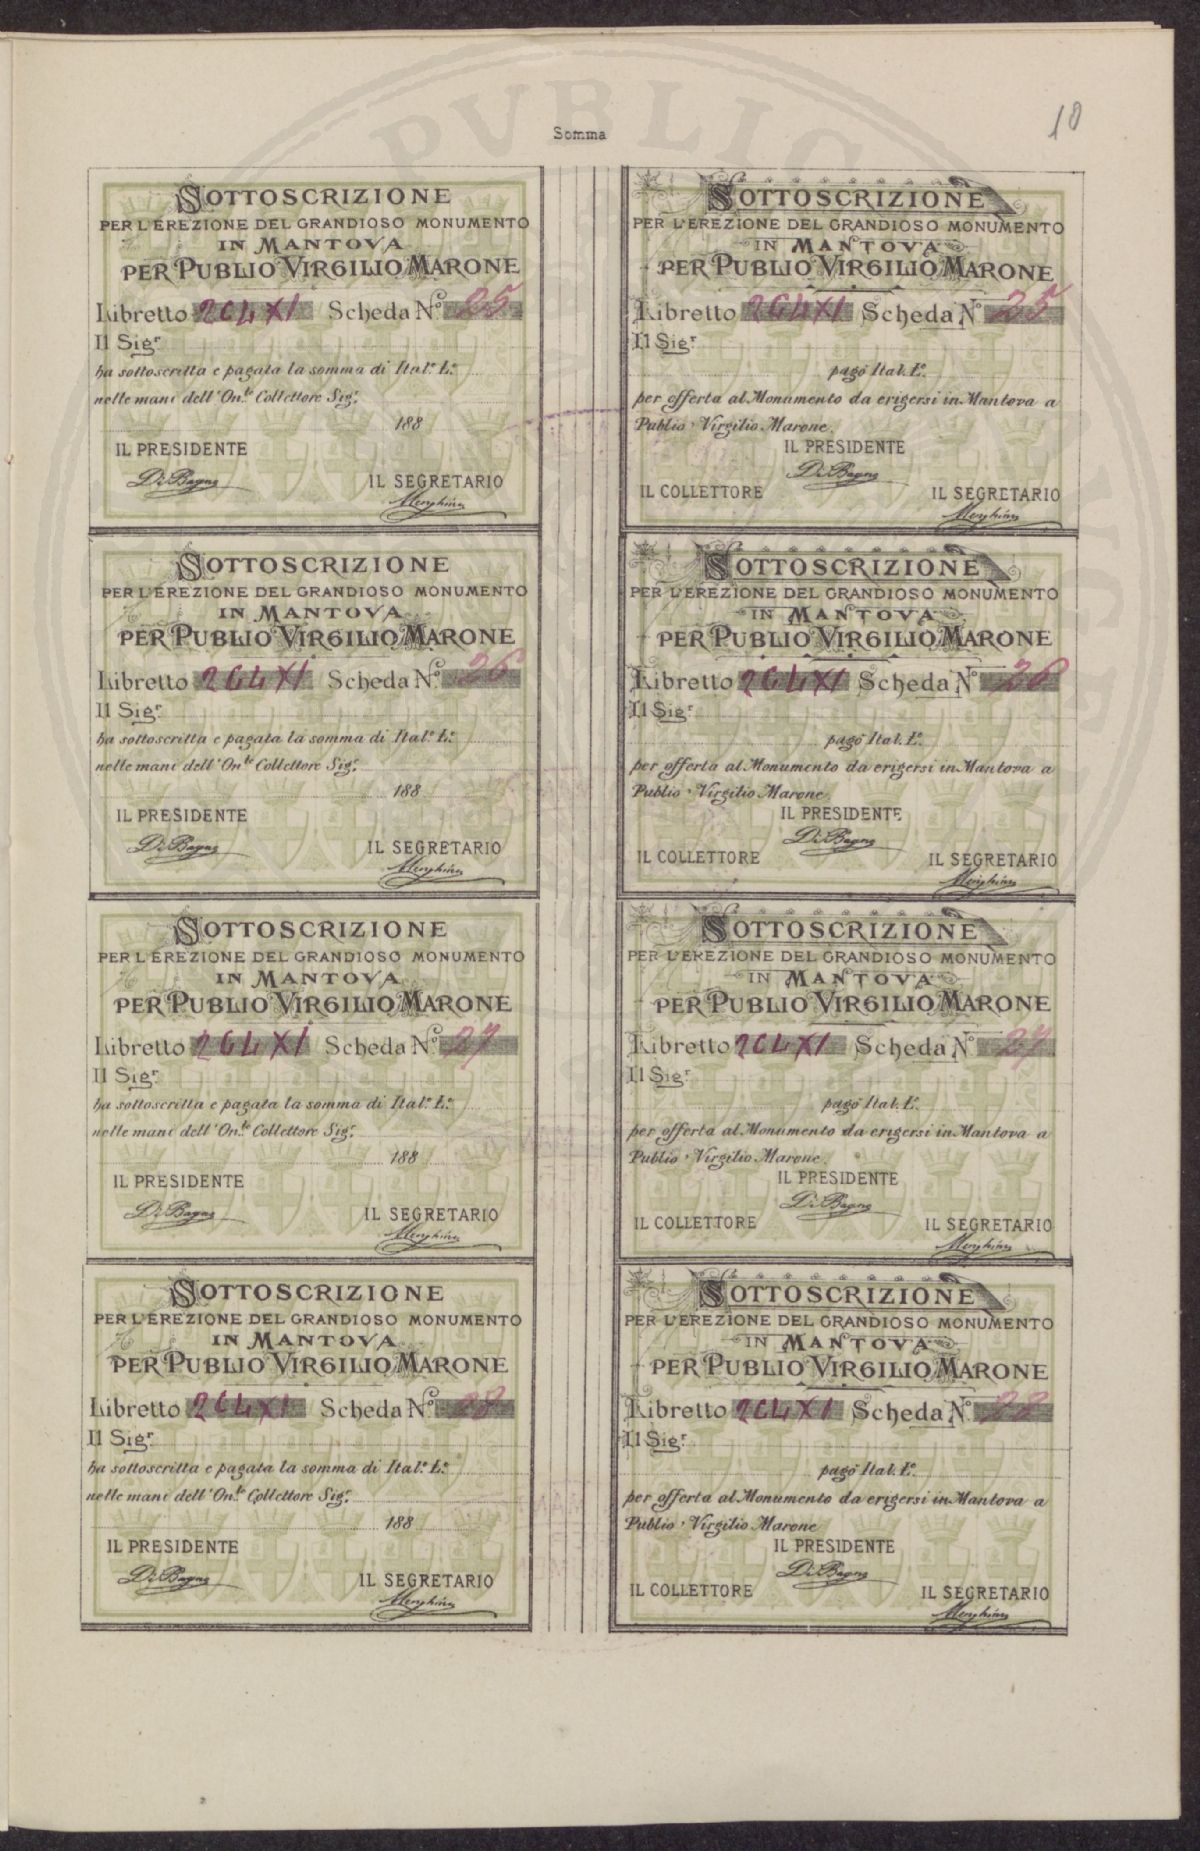 10
Somma
SOTTOSCRIZIONE
PER L'EREZIONE DEL GRANDIOSO MONUMENTO
IN MANTOVA
PER PUBLIO VIRGILIO MARONE
Libretto 264 XI Scheda N.º 25
Il Sig.r
ha sottoscritta e pagata la somma di Ital.e L.e
nelle mani dell'On.le Collettore Sig.r
188
IL PRESIDENTE
Di Bagno
IL SEGRETARIO
SOTTOSCRIZIONE
PER L'EREZIONE DEL GRANDIOSO MONUMENTO
IN MANTOVA
PER PUBLIO VIRGILIO MARONE
Libretto 264 XI Scheda N.º 25
Il Sig.r
pagò Ital. L.e
per offerta al Monumento da erigersi in Mantova a
Publio Virgilio Marone.
IL PRESIDENTE
Di Bagno
IL COLLETTORE IL SEGRETARIO
SOTTOSCRIZIONE
PER L'EREZIONE DEL GRANDIOSO MONUMENTO
IN MANTOVA
PER PUBLIO VIRGILIO MARONE
Libretto 264 XI Scheda N.º 26
Il Sig.r
ha sottoscritta e pagata la somma di Ital.e L.e
nelle mani dell'On.le Collettore Sig.r
188
IL PRESIDENTE
Di Bagno
IL SEGRETARIO
SOTTOSCRIZIONE
PER L'EREZIONE DEL GRANDIOSO MONUMENTO
IN MANTOVA
PER PUBLIO VIRGILIO MARONE
Libretto 264 XI Scheda N.º 26
Il Sig.r
pagò Ital. L.e
per offerta al Monumento da erigersi in Mantova a
Publio Virgilio Marone.
IL PRESIDENTE
Di Bagno
IL COLLETTORE IL SEGRETARIO
SOTTOSCRIZIONE
PER L'EREZIONE DEL GRANDIOSO MONUMENTO
IN MANTOVA
PER PUBLIO VIRGILIO MARONE
Libretto 264 XI Scheda N.º 27
Il Sig.r
ha sottoscritta e pagata la somma di Ital.e L.e
nelle mani dell'On.le Collettore Sig.r
188
IL PRESIDENTE
Di Bagno
IL SEGRETARIO
SOTTOSCRIZIONE
PER L'EREZIONE DEL GRANDIOSO MONUMENTO
IN MANTOVA
PER PUBLIO VIRGILIO MARONE
Libretto 264 XI Scheda N.º 27
Il Sig.r
pagò Ital. L.e
per offerta al Monumento da erigersi in Mantova a
Publio Virgilio Marone.
IL PRESIDENTE
Di Bagno
IL COLLETTORE IL SEGRETARIO
SOTTOSCRIZIONE
PER L'EREZIONE DEL GRANDIOSO MONUMENTO
IN MANTOVA
PER PUBLIO VIRGILIO MARONE
Libretto 264 XI Scheda N.º 28
Il Sig.r
ha sottoscritta e pagata la somma di Ital.e L.e
nelle mani dell'On.le Collettore Sig.r
188
IL PRESIDENTE
Di Bagno
IL SEGRETARIO
SOTTOSCRIZIONE
PER L'EREZIONE DEL GRANDIOSO MONUMENTO
IN MANTOVA
PER PUBLIO VIRGILIO MARONE
Libretto 264 XI Scheda N.º 28
Il Sig.r
pagò Ital. L.e
per offerta al Monumento da erigersi in Mantova a
Publio Virgilio Marone
IL PRESIDENTE
Di Bagno
IL COLLETTORE IL SEGRETARIO